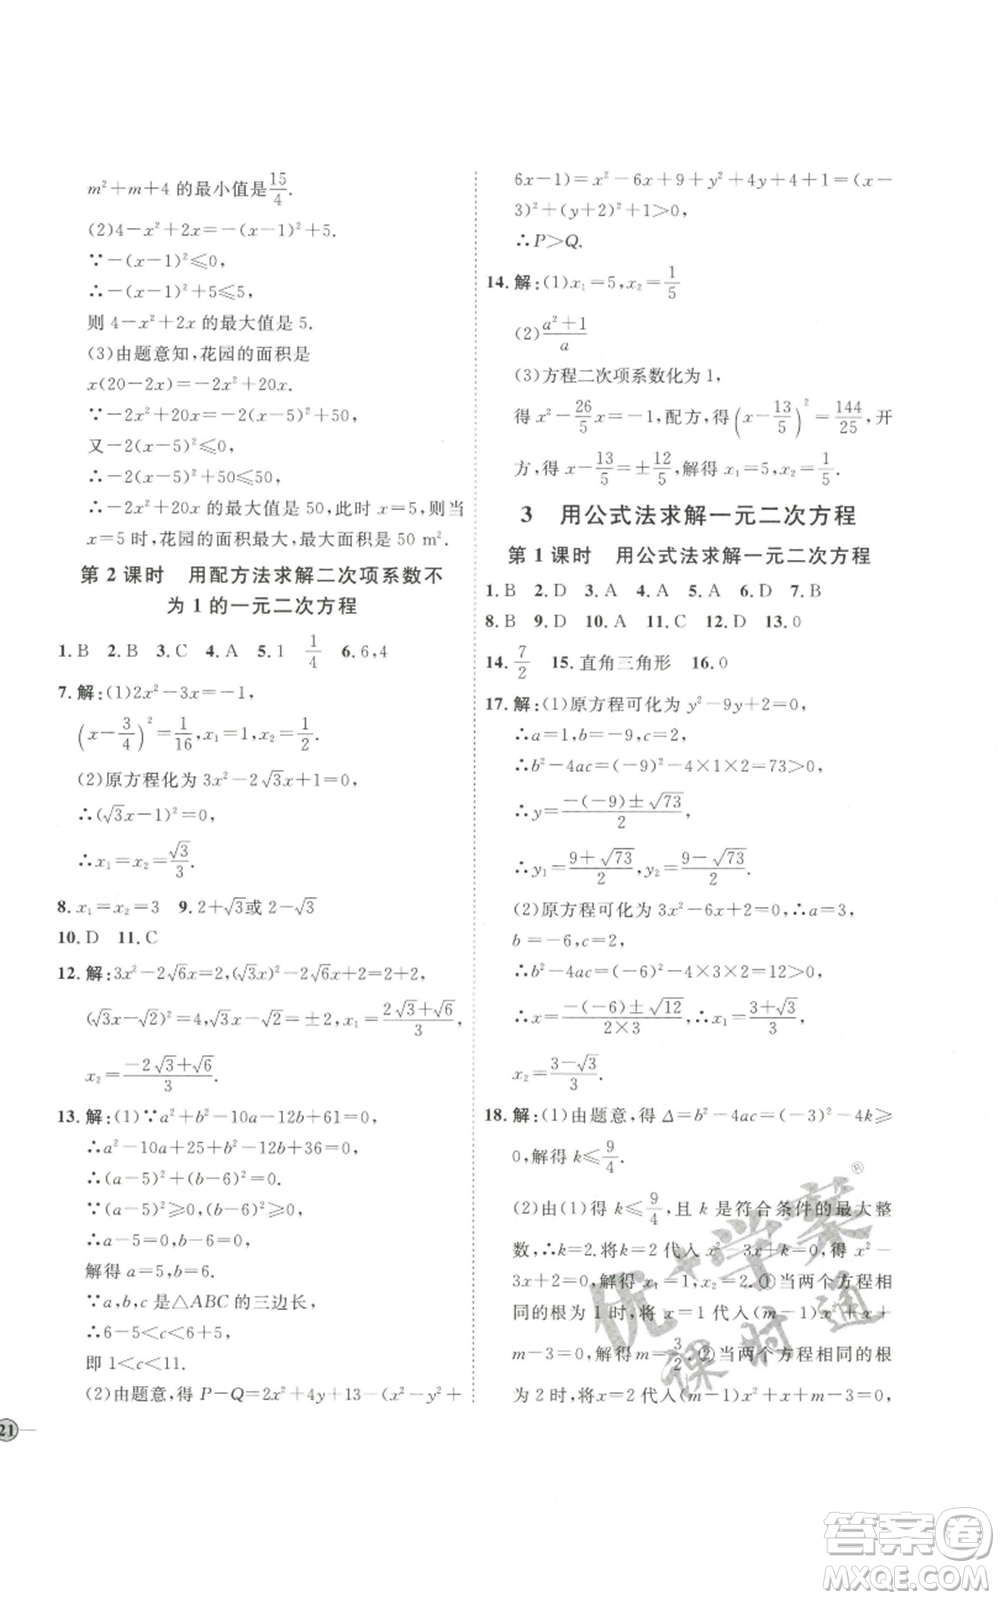 m²+m+4 的最小值是15/4.
(2)4-x²+2x=-(x-1)²+5.
∵-(x-1)²≤0,
∴-(x-1)²+5≤5.
则 4-x²+2x 的最大值是 5.
(3)由题意知,花园的面积是
x(20-2x)=-2x²+20x.
∵-2x²+20x=-2(x-5)²+50,
又-2(x-5)²≤0,
∴-2(x-5)²+50≤50,
∴-2x²+20x 的最大值是 50,此时 x=5,则当
x=5 时,花园的面积最大,最大面积是 50 m².
第 2 课时 用配方法求解二次项系数不
为 1 的一元二次方程
1. B 2. B 3. C 4. A 5. 1 1/4 6. 6,4
7. 解:(1)2x²-3x=-1,
(x-3/4)²=1/16,x₁=1,x₂=1/2.
(2)原方程化为 3x²-2√3x=-1,
∴(√3x-1)²=0,
∴x₁=x₂=√3/3.
8. x₁=x₂=3 9. 2+√3或 2-√3
10. D 11. C
12. 解:3x²-2√6x=2,(√3x)²-2√6x+2=2+2,
(√3x-√2)²=4,√3x-√2=±2,x₁=(2√3+√6)/3,
x₂=(-2√3+√6)/3.
13. 解:(1)∵a²+b²-10a-12b+61=0,
∴a²-10a+25+b²-12b+36=0,
∴(a-5)²+(b-6)²=0.
∵(a-5)²≥0,(b-6)²≥0,
∴a-5=0,b-6=0,
解得 a=5,b=6.
∵a,b,c 是△ABC 的三边长,
∴6-5<c<6+5,
即 1<c<11.
(2)由题意,得 P-Q=2x²+4y+13-(x²-y²+
21
6x-1)=x²-6x+9+y²+4y+4+1=(x-
3)²+(y+2)²+1>0,
∴P>Q.
14. 解:(1)x₁=5,x₂=1/5
(2)(a²+1)/a
(3)方程二次项系数化为 1,
得 x²-26/5x=-1,配方,得(x-13/5)²=144/25,开
方,得 x-13/5=±12/5,解得 x₁=5,x₂=1/5.
3 用公式法求解一元二次方程
第 1 课时 用公式法求解一元二次方程
1. B 2. D 3. A 4. A 5. A 6. D 7. B
8. B 9. D 10. A 11. A 12. D 13. 0
14. 7/2 15. 直角三角形 16. 0
17. 解:(1)原方程可化为 y²-9y+2=0,
∴a=1,b=-9,c=2,
∴b²-4ac=(-9)²-4×1×2=73>0,
∴y=(-(-9)±√73)/2,
∴y₁=(9+√73)/2,y₂=(9-√73)/2.
(2)原方程可化为 3x²-6x+2=0,∴a=3,
b=-6,c=2,
∴b²-4ac=(-6)²-4×3×2=12>0,
∴x=(-(-6)±√12)/(2×3),∴x₁=(3+√3)/3,
x₂=(3-√3)/3.
18. 解:(1)由题意,得 Δ=b²-4ac=(-3)²-4k≥
0,解得 k≤9/4.
(2)由(1)得 k≤9/4,且 k 是符合条件的最大整
数,∴k=2.将 k=2 代入 x²-3x+k=0,得 x²-
3x+2=0,解得 x₁=1,x₂=2.①当两个方程相
同的根为 1 时,将 x=1 代入(m-1)x²+x+
m-3=0,解得 m=3/2.②当两个方程相同的根
为 2 时,将 x=2 代入(m-1)x²+x+m-3=0,
优+学案
课时通
®
答案卷
www.daanjuan.com